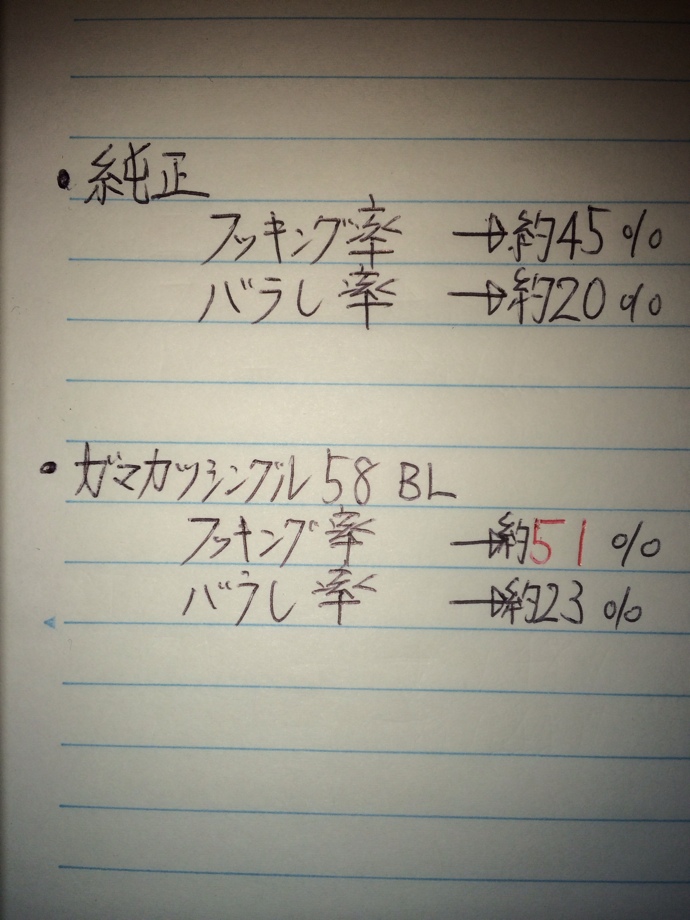 ・純正
フッキング率 →約45%
バラし率 →約20%
・ガマカツシングル58BL
フッキング率 →約51%
バラし率 →約23%